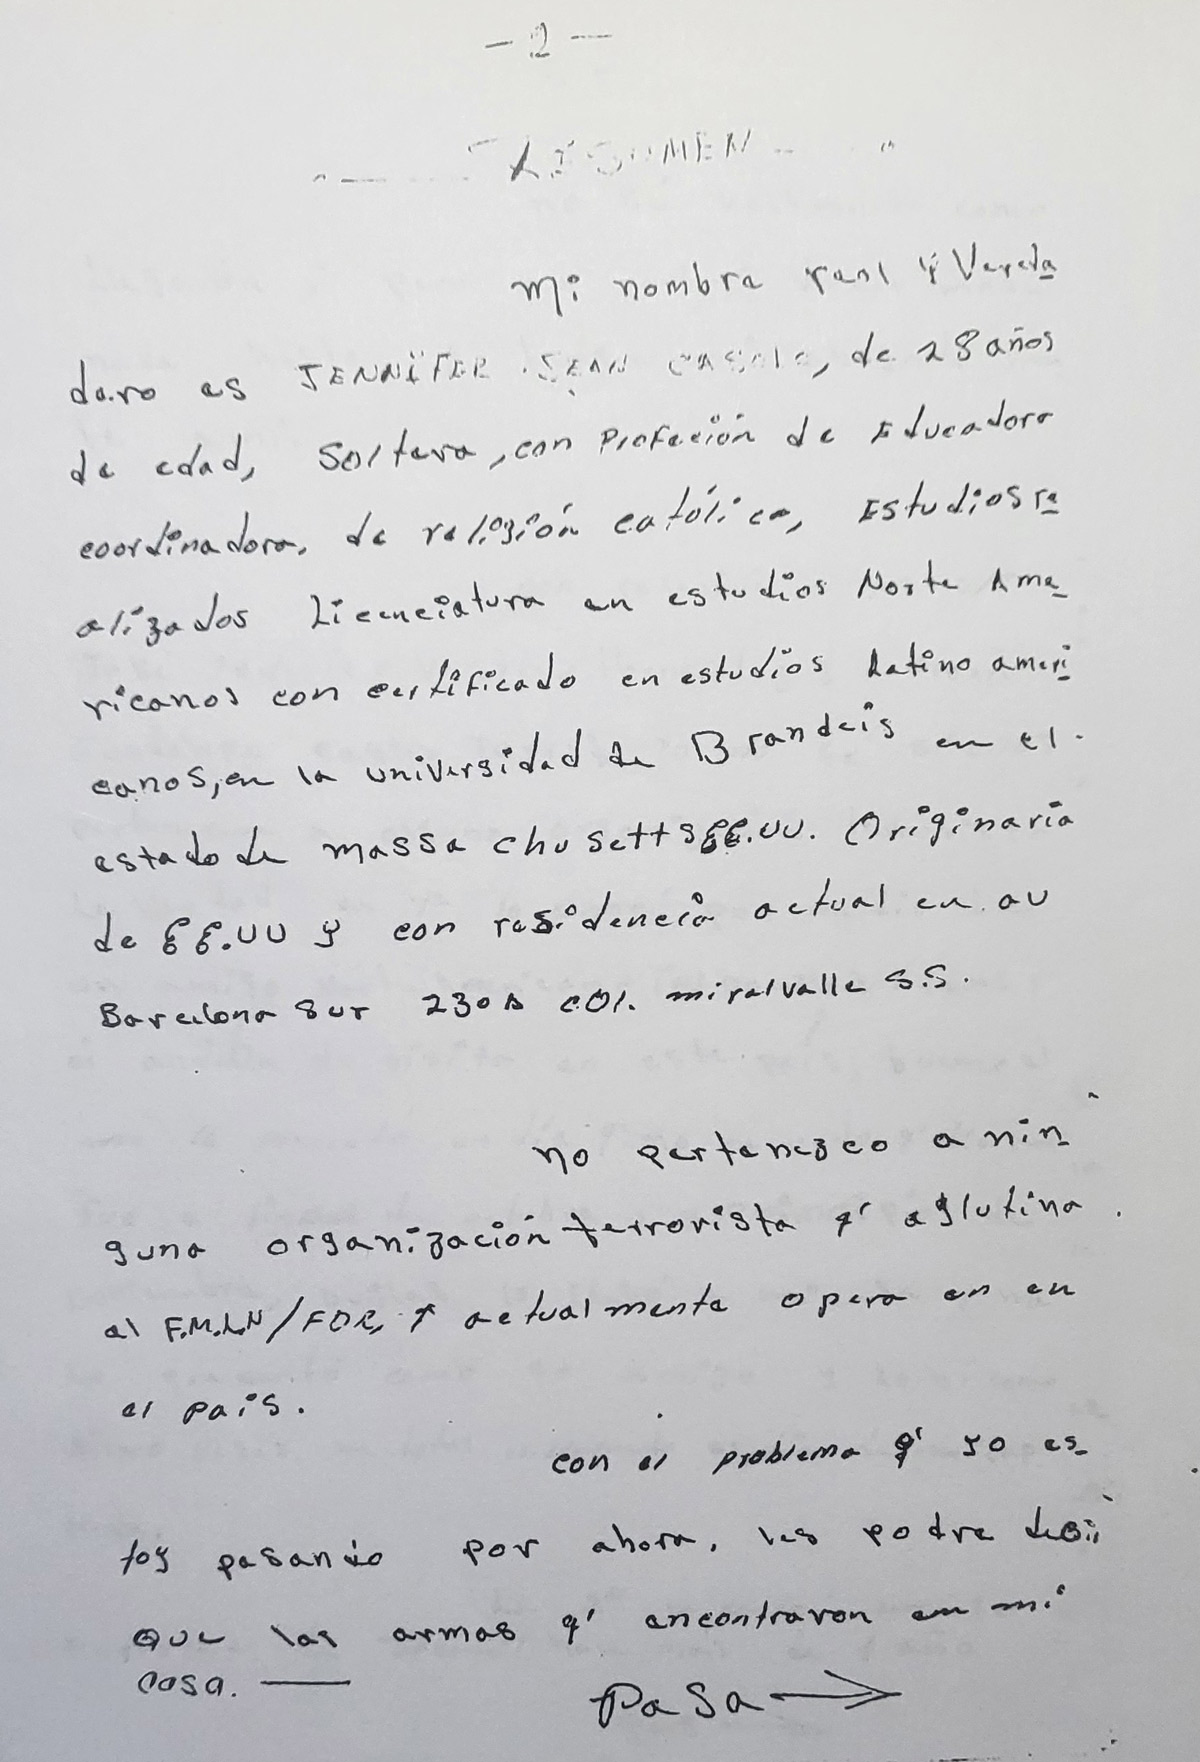 - 2 -
"— RESUMEN — "
Mi nombre real y Verda
dero es JENNiFER JEAN CASOLO, de 28 años
de edad, Soltera, con Profeción de Educadora
coordinadora, de religión católica, Estudios re
alizados Licenciatura en estudios Norte Ame
ricanos con certificado en estudios Latino ameri
canos, en la universidad de Brandeis en el
estado de massachusetts EE.UU. Originaria
de EE.UU y con residencia actual en av
Barcelona Sur 230A col. miralvalle S.S.
no pertenezco a nin
guna organización terrorista q' aglutina
al F.M.L.N/FDR, y actualmente opera en en
el pais.
con el problema q' yo es
toy pasando por ahora, les podre desir
que las armas q' encontraron en mi
casa. —
Pasa →